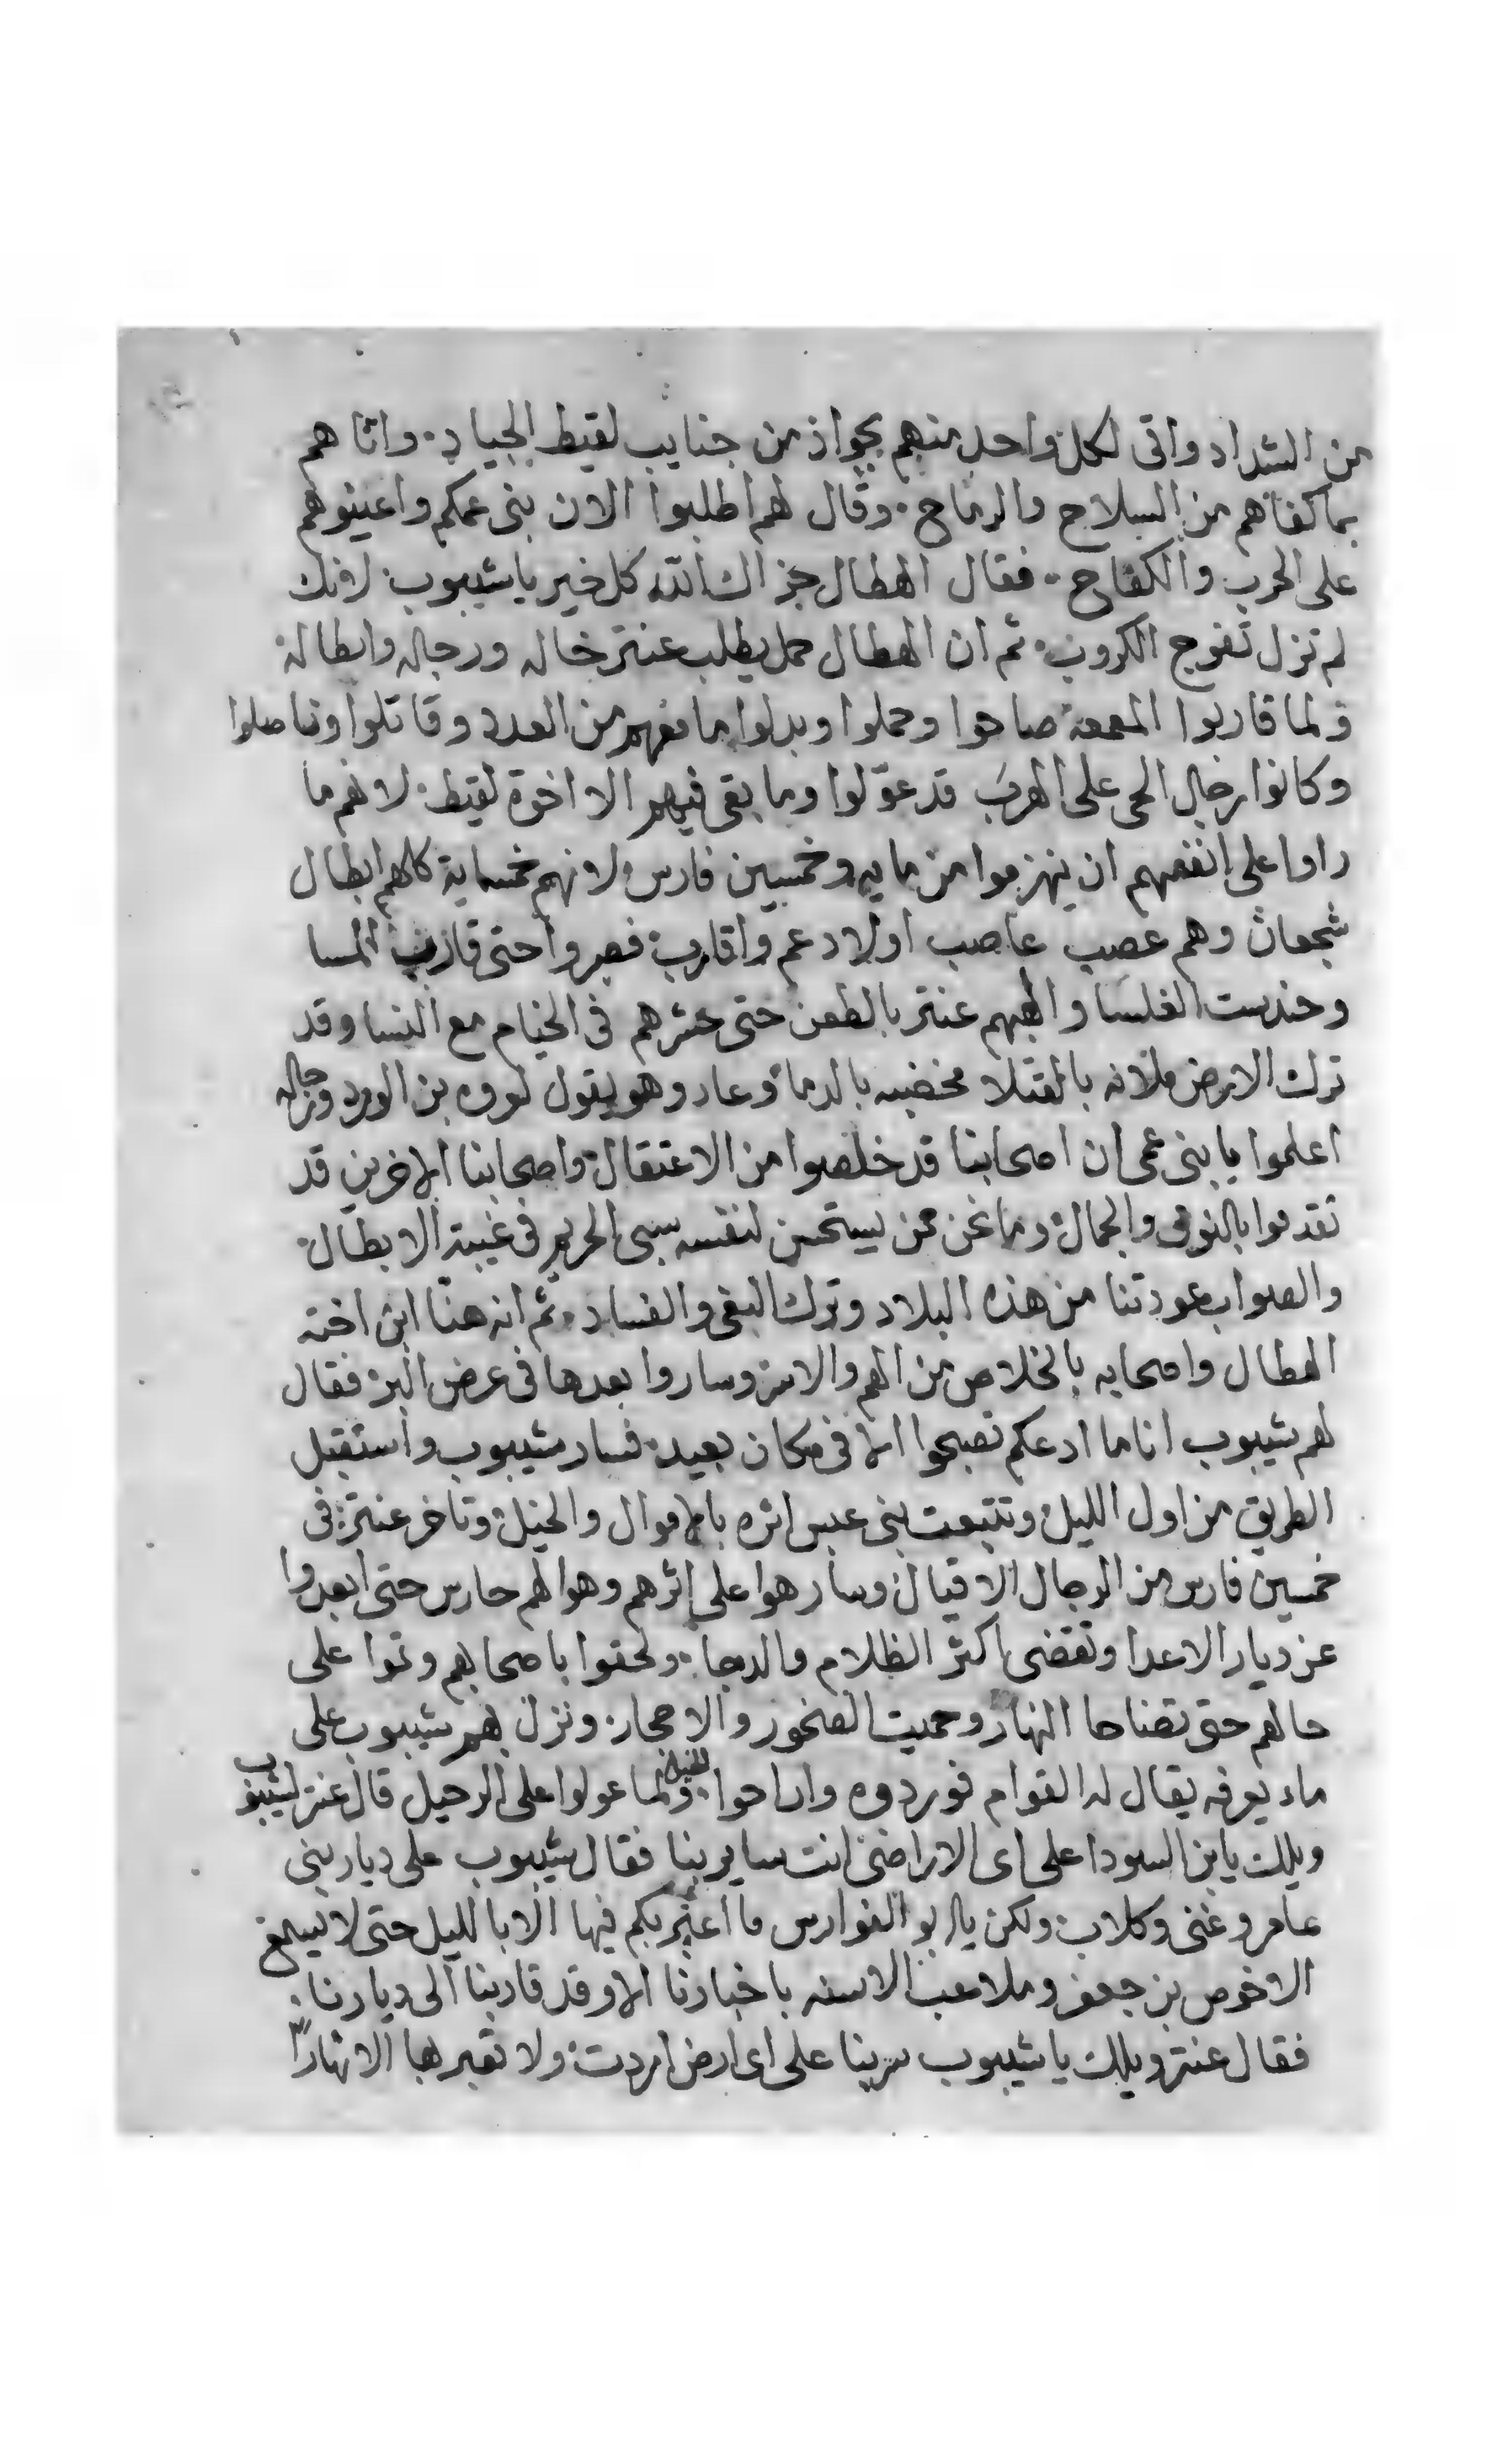 من الشداد واتى لكل واحد منهم بجواد من جنايب لقيط الجياد. واتاهم
بما كفاهم من السلاح والرماح. وقال لهم اطلبوا الان بنى عمكم واعينوهم
على الحرب والكفاح. فقال الهطال جزاك الله كل خير يا شيبوب. لانك
لم تزل تفرج الكروب. ثم ان الهطال حمل يطلب عنتر خاله ورجاله وابطاله
ولما قاربوا المعمعة صاحوا وحملوا وبدلوا ما معهم من العدد وقاتلوا وناصلوا
وكانوا رجال الحى على الهرب قد عوّلوا وما بقى فيهم الا اخوة لقيط. لانهم ما
راوا على انفسهم ان ينهزموا من مايه وخمسين فارس ولانهم خمسماية كلهم ابطال
شجعان وهم عصب عاصب اولاد عم واقارب فصبروا حتى قارب المسا
وحندست الغلسا والهبهم عنتر بالطعن حتى حشرهم فى الخيام مع النسا وقد
ترك الارض ملانه بالقتلا مخضبه بالدما وعاد وهو يقول لعروه بن الورد ورجاله
اعلموا يا بنى عمى ان اصحابنا قد خلصوا من الاعتقال واصحابنا الاخرين قد
تقدموا بالنوق والجمال وما نحن ممن يستحسن لنفسه سبى الحريم فى غيبة الابطال.
والصواب عودتنا من هذه البلاد وترك البغى والفساد. ثم انه هنّا ابن اخته
الهطال واصحابه بالخلاص من الهم والاسر وساروا بعدها فى عرض البر. فقال
لهم شيبوب انا ما ادعكم تصبحوا الا فى مكان بعيد. فسار شيبوب واستقبل
الطريق من اول الليل وتتبعت بنى عبس اثره بالاموال والخيل وتاخر عنتر فى
خمسين فارس من الرجال الاقيال وسار هوا على اثرهم وهوا لهم حارس حتى ابعدوا
عن ديار الاعدا وتقضى اكثر الظلام والدجا. ولحقوا باصحابهم وتموا على
حالهم حتى تضاحا النهار وحميت الصخور والاحجار. ونزل بهم شيبوب على
ماء يعرفه يقال له القوام فوردوه واراحوا الخيل ولما عولوا على الرحيل قال عنتر لشيبوب
ويلك يا بن السودا على اى الاراضى انت ساير بنا فقال شيبوب على ديار بنى
عامر وغنى وكلاب. ولكن يا ابو الفوارس ما اعبر بكم فيها الا بالليل حتى لا يسمع
الاخوص بن جعفر وملاعب الاسنه باخبارنا الا وقد قاربنا الى ديارنا.
فقال عنتر ويلك يا شيبوب سر بنا على اى ارض اردت ولا تعبر بها الا نهاراً